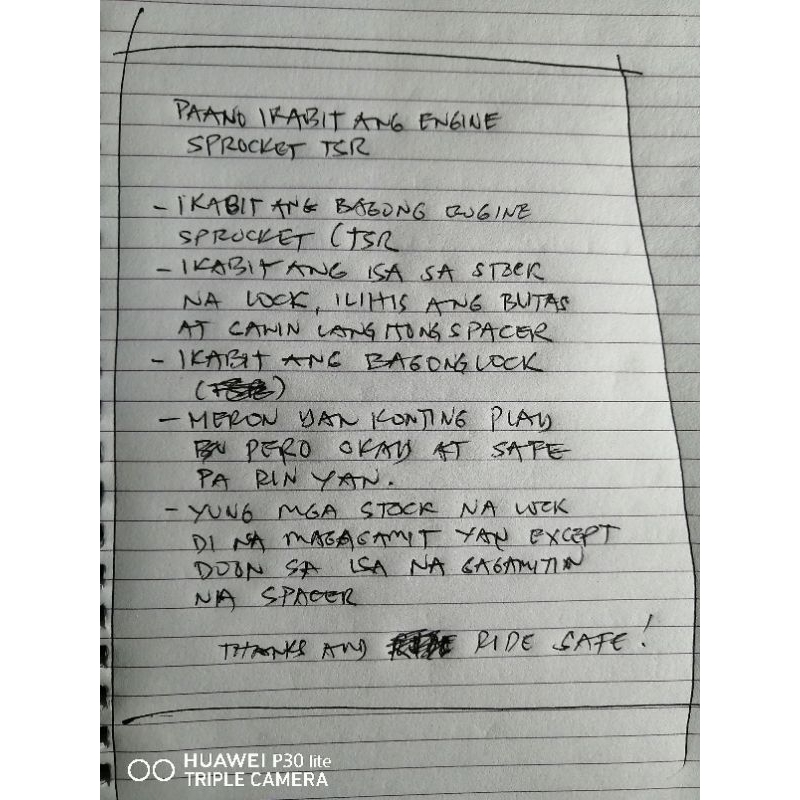 PAANO IKABIT ANG ENGINE
SPROCKET TSR
- IKABIT ANG BAGONG ENGINE
SPROCKET (TSR
- IKABIT ANG ISA SA STOCK
NA LOCK, ILIHIS ANG BUTAS
AT GAWIN LANG ITONG SPACER
- IKABIT ANG BAGONG LOCK
- MERON YAN KONTING PLAY
PERO OKAY AT SAFE
PA RIN YAN.
- YUNG MGA STOCK NA LOCK
DI NA MAGAGAMIT YAN EXCEPT
DOON SA ISA NA GAGAMITIN
NA SPACER
THANKS AND RIDE SAFE!
HUAWEI P30 lite
TRIPLE CAMERA